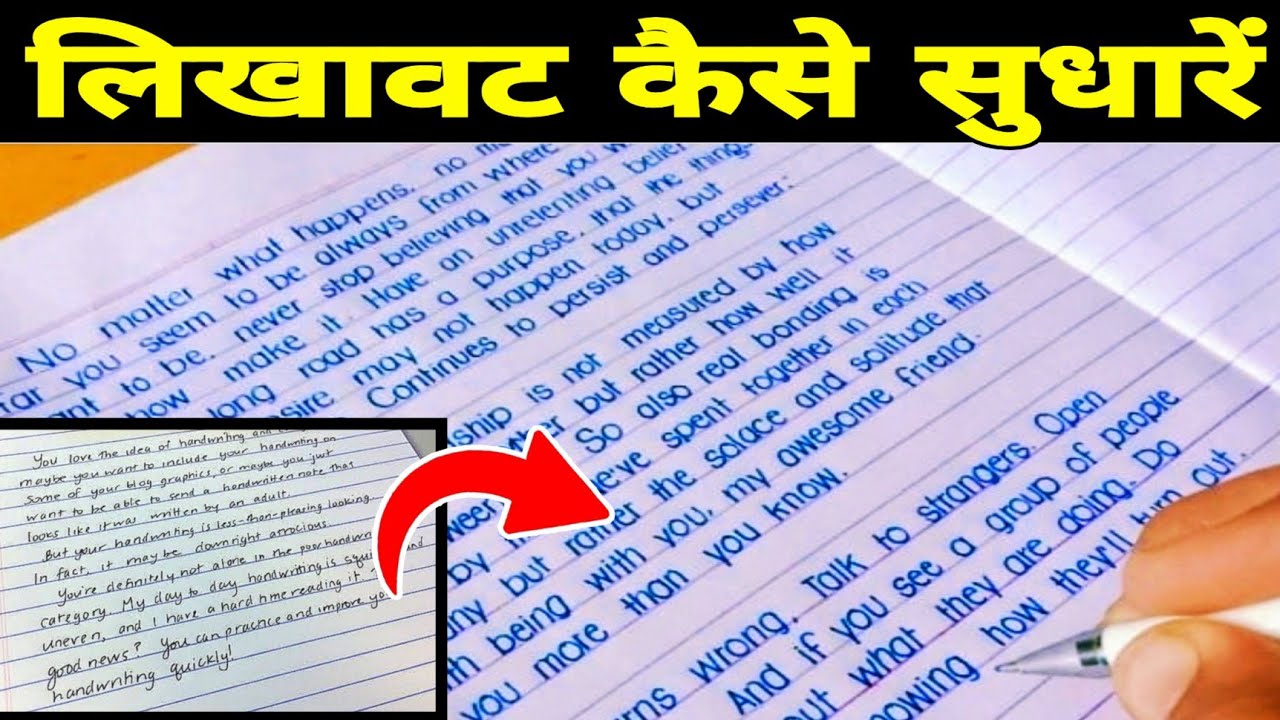 लिखावट कैसे सुधारें
No matter what happens, no
far you seem to be always from where
to be, never stop believing that you
how make it. Have an unrelenting belief
long road has a purpose, that the thing
may not happen today, but
Continues to persist and persever:
is not measured by how
but rather how well it
So also real bonding is
spent together in each
but rather the solace and solitude that
being with you, my awesome friend.
you more than you know.
wrong. Talk to strangers. Open
And if you see a group of people
what they are doing. Do
how they'll turn out.
You love the idea of handwriting and
maybe you want to include your handwriting on
some of your blog graphics, or maybe you just
want to be able to send a handwritten note that
looks like it was written by an adult.
But your handwriting is less-than-pleasing looking
In fact, it may be downright atrocious.
You're definitely not alone in the poor
category. My day to day handwriting is
uneven, and I have a hard time reading it
good news? You can practice and improve
handwriting quickly!